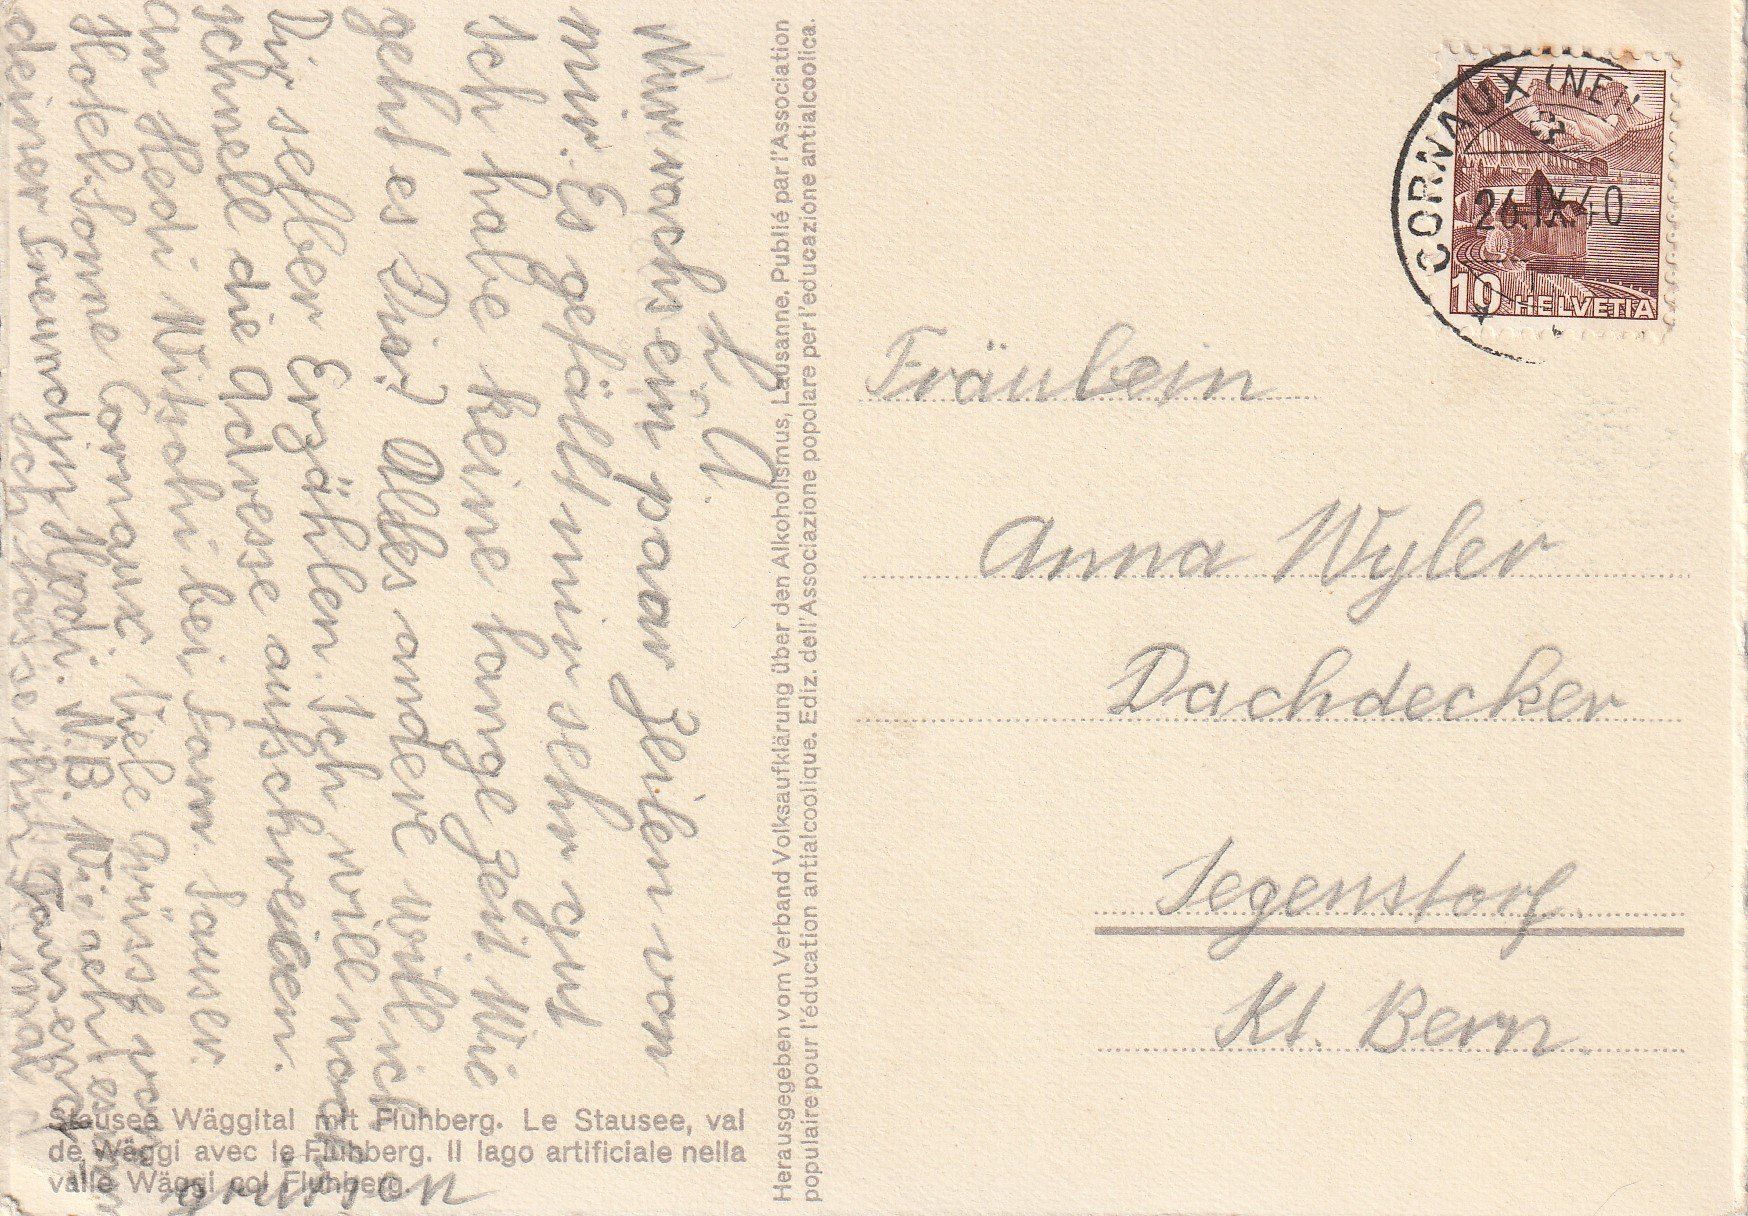 L. A.
Nur rasch ein paar Zeilen von
mir. Es gefällt mir sehr gut
Ich habe keine lange Zeit. Wie
geht es Dir? Alles andere will ich
Dir selber Erzählen. Ich will noch
schnell die Adresse aufschreiben.
An Hedi bei Fam.
Hotel. Cornaux. Viele Grüsse von
deiner Hedi. N.B. Wie geht es
Ich lasse sie
grüssen
Stausee Wäggital mit Fluhberg. Le Stausee, val
de Wäggi avec le Fluhberg. Il lago artificiale nella
valle Wäggi col Fluhberg.
Herausgegeben vom Verband Volksaufklärung über den Alkoholismus, Lausanne. Publié par l'Association
populaire pour l'éducation antialcoolique. Ediz. dell'Associazione popolare per l'educazione antialcoolica.
CORNAUX (NE
26.IX.40
10 HELVETIA
Fräulein
Anna Wyler
Dachdecker
Jegenstorf
Kt. Bern.